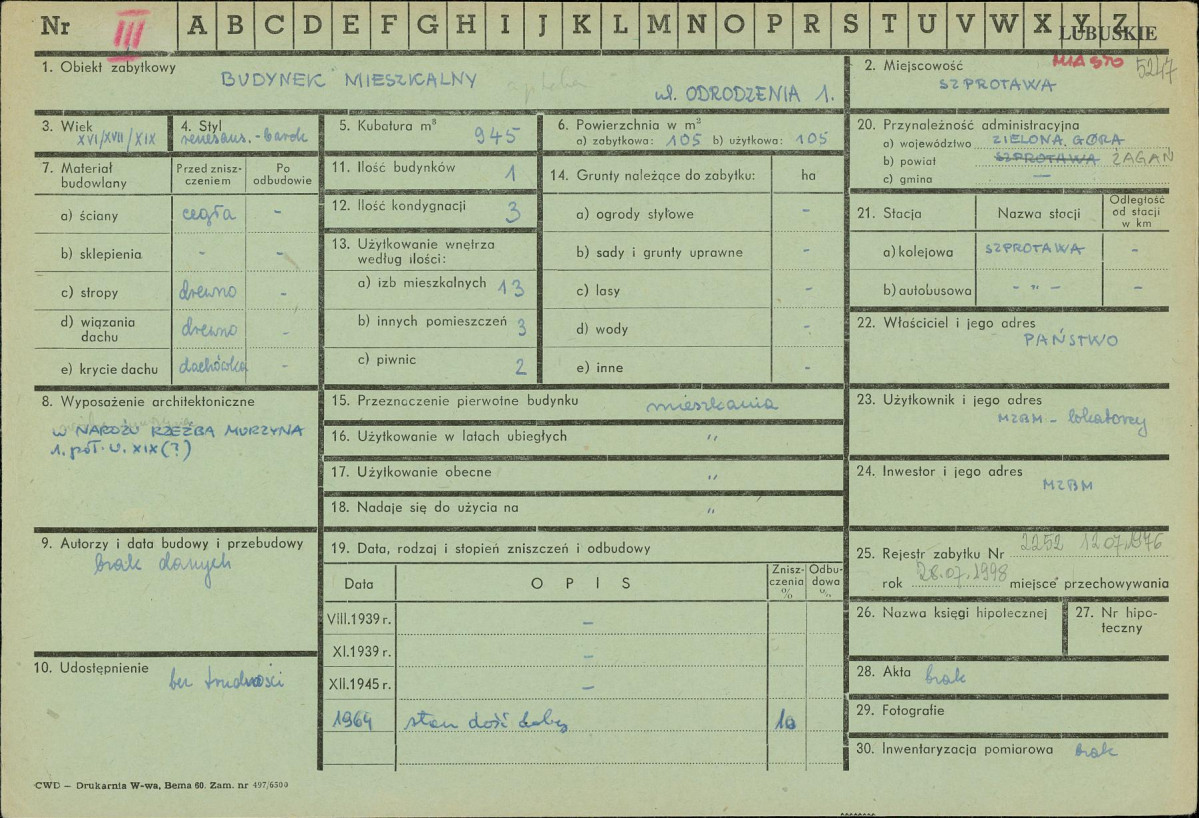 Nr III A B C D E F G H I J K L M N O P R S T U V W X Y Z LUBUSKIE
1. Obiekt zabytkowy BUDYNEK MIESZKALNY apteka ul. ODRODZENIA 1.
2. Miejscowość MIASTO 5247
SZPROTAWA
3. Wiek XVI/XVII/XIX
4. Styl renesans.-barok
5. Kubatura m³ 945
6. Powierzchnia w m²
a) zabytkowa: 105 b) użytkowa: 105
7. Materiał budowlany
Przed zniszczeniem
Po odbudowie
a) ściany cegła -
b) sklepienia - -
c) stropy drewno -
d) wiązania dachu drewno -
e) krycie dachu dachówka -
8. Wyposażenie architektoniczne
W NAROŻU RZEŹBA MURZYNA
1. poł. w. XIX (?)
9. Autorzy i data budowy i przebudowy
brak danych
10. Udostępnienie bez trudności
11. Ilość budynków 1
12. Ilość kondygnacji 3
13. Użytkowanie wnętrza
według ilości:
a) izb mieszkalnych 13
b) innych pomieszczeń 3
c) piwnic 2
14. Grunty należące do zabytku: ha
a) ogrody stylowe -
b) sady i grunty uprawne -
c) lasy -
d) wody -
e) inne -
15. Przeznaczenie pierwotne budynku mieszkania
16. Użytkowanie w latach ubiegłych "
17. Użytkowanie obecne "
18. Nadaje się do użycia na "
19. Data, rodzaj i stopień zniszczeń i odbudowy
Data OPIS Zniszczenia % Odbudowa %
VIII.1939 r. -
XI.1939 r. -
XII.1945 r. -
1964 stan dość dobry 10
20. Przynależność administracyjna
a) województwo ZIELONA GÓRA
b) powiat SZPROTAWA ŻAGAŃ
c) gmina -
21. Stacja Nazwa stacji Odległość od stacji w km
a) kolejowa SZPROTAWA -
b) autobusowa - " - -
22. Właściciel i jego adres
PAŃSTWO
23. Użytkownik i jego adres
MZBM - lokatorzy
24. Inwestor i jego adres
MZBM
25. Rejestr zabytku Nr 2252 12.07.1976
rok 28.07.1998 miejsce przechowywania
26. Nazwa księgi hipotecznej
27. Nr hipoteczny
28. Akta brak
29. Fotografie
30. Inwentaryzacja pomiarowa brak
CWD — Drukarnia W-wa, Bema 60. Zam. nr 497/6500